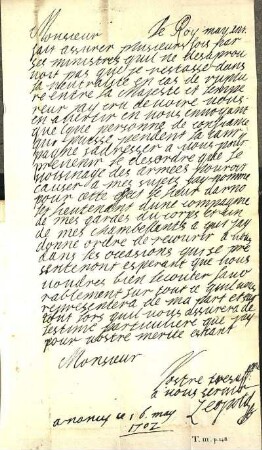 Monsieur le Roy mayant
fait assurer plusieurs fois par
ses ministres quil ne desaprou
voit pas que je restasse dans
la neutralité en cas de ruptu
re entre sa majesté et lempe
reur jay cru devoir vous
en avertir en vous envoyant
quelque personne de confiance
qui puisse pendant la cam
pagne sadresser a vous pour
prevenir le desordre que le
voisinage des armées pouroit
causer a mes sujets jay nommé
pour cette effet le sieur darno
les lieutendant dune compagnie
de mes gardes du corps et un
de mes chambellants a qui jay
donné ordre de recourir a vous
dans les occasions qui se pre
senteront esperant que vous
voudres bien lecouter favo
rablement sur tout ce quil vous
representera de ma part et
lors quil vous assurera de
lestime particuliere que jay
pour vostre merite estant
Monsieur
Vostre tres aff
a vous servir
Leopold
a nancy ce 16 may
1702
T. III. p. 148